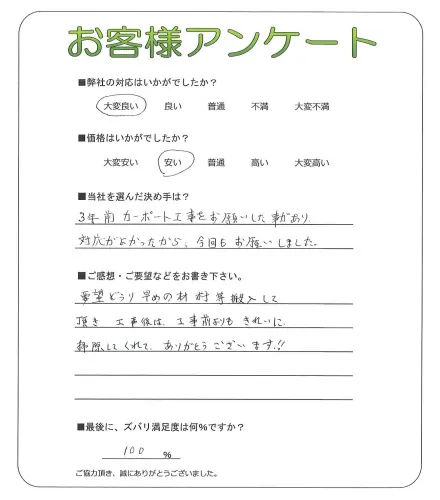 お客様アンケート
■弊社の対応はいかがでしたか？
大変良い 良い 普通 不満 大変不満
■価格はいかがでしたか？
大変安い 安い 普通 高い 大変高い
■当社を選んだ決め手は？
3年前 カーポート工事をお願いした事があり
対応がよかったから、今回もお願いしました。
■ご感想・ご要望などをお書き下さい。
要望どうり早めの材料等搬入して
頂き 工事後は、工事前よりもきれいに
掃除してくれて、ありがとうございます!!
■最後に、ズバリ満足度は何%ですか？
100 %
ご協力頂き、誠にありがとうございました。